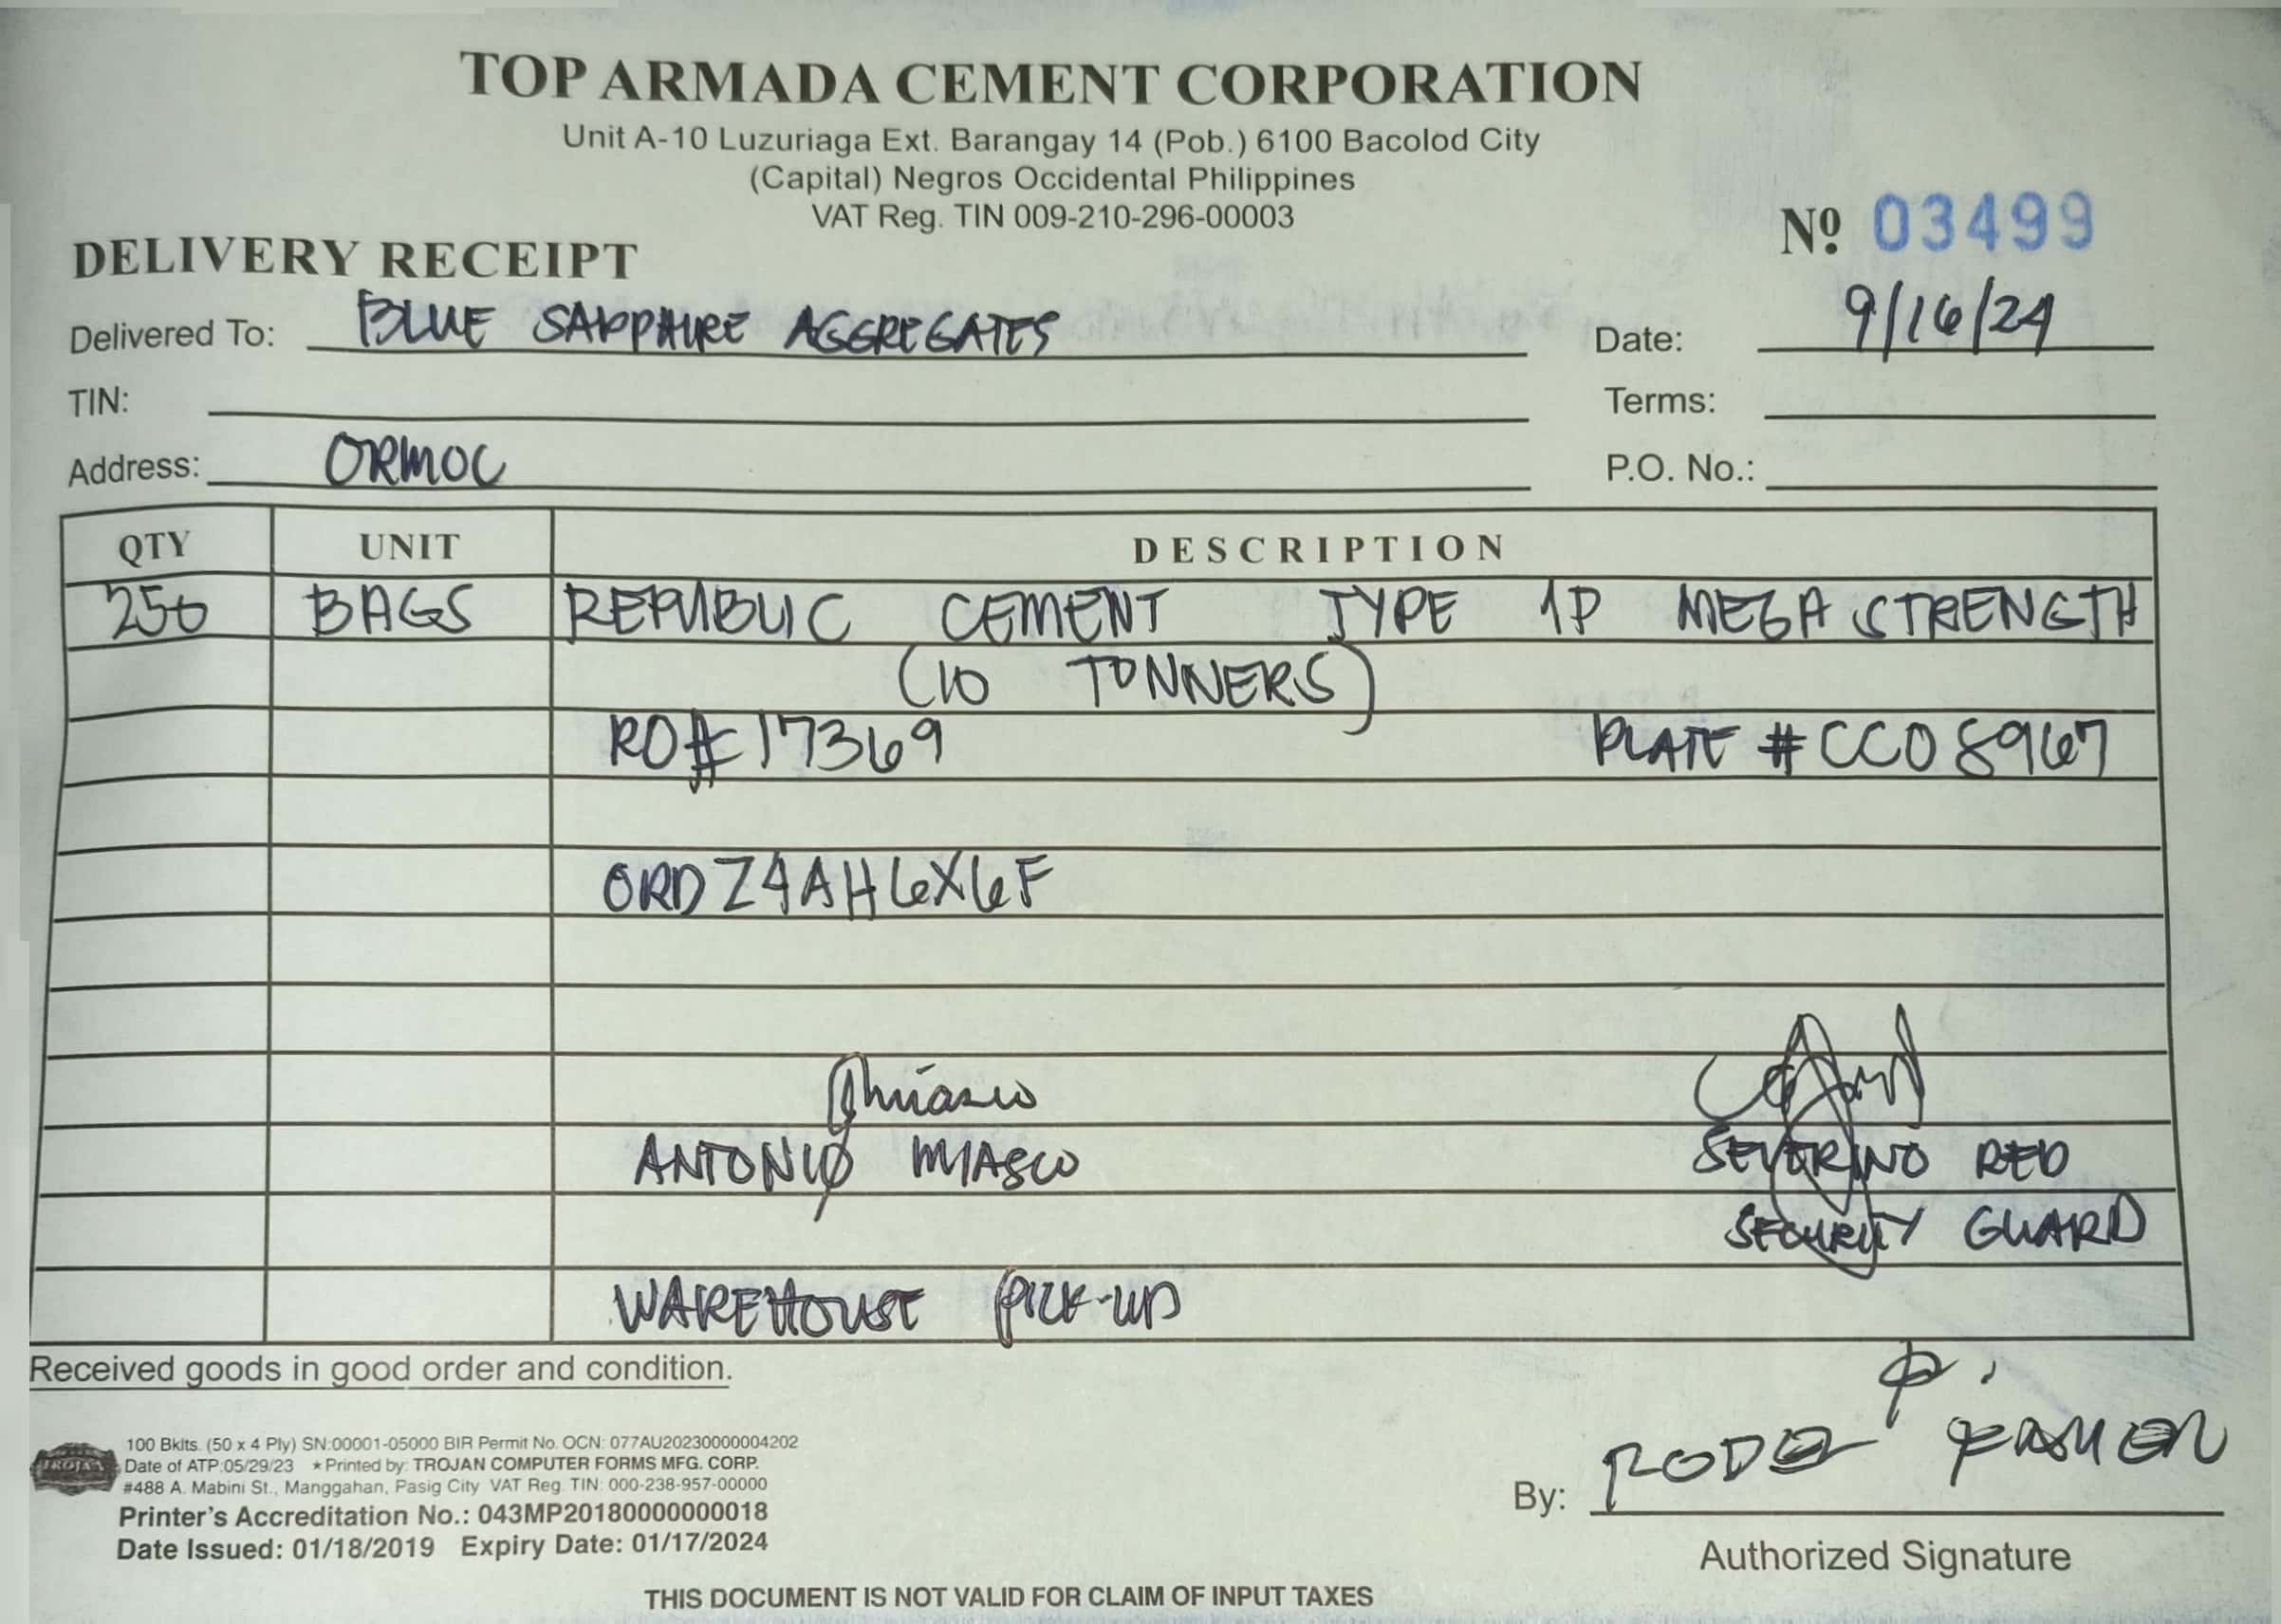 TOP ARMADA CEMENT CORPORATION
Unit A-10 Luzuriaga Ext. Barangay 14 (Pob.) 6100 Bacolod City
(Capital) Negros Occidental Philippines
VAT Reg. TIN 009-210-296-00003
Nº 03499
DELIVERY RECEIPT
Delivered To: BLUE SAPPHIRE AGGREGATES Date: 9/16/24
TIN: Terms:
Address: ORMOC P.O. No.:
QTY UNIT DESCRIPTION
250 BAGS REPUBLIC CEMENT TYPE 1P MEGA STRENGTH
(10 TONNERS)
RO# 17369 PLATE # CCO 8967
ORDZ4AH6X6F
ANTONIO MIASCO SEVERINO RED
SECURITY GUARD
WAREHOUSE PICK-UP
Received goods in good order and condition.
TROJAN
100 Bklts. (50 x 4 Ply) SN:00001-05000 BIR Permit No. OCN: 077AU20230000004202
Date of ATP:05/29/23 ★Printed by: TROJAN COMPUTER FORMS MFG. CORP.
#488 A. Mabini St., Manggahan, Pasig City VAT Reg. TIN: 000-238-957-00000
Printer's Accreditation No.: 043MP20180000000018
Date Issued: 01/18/2019 Expiry Date: 01/17/2024
By:
Authorized Signature
THIS DOCUMENT IS NOT VALID FOR CLAIM OF INPUT TAXES